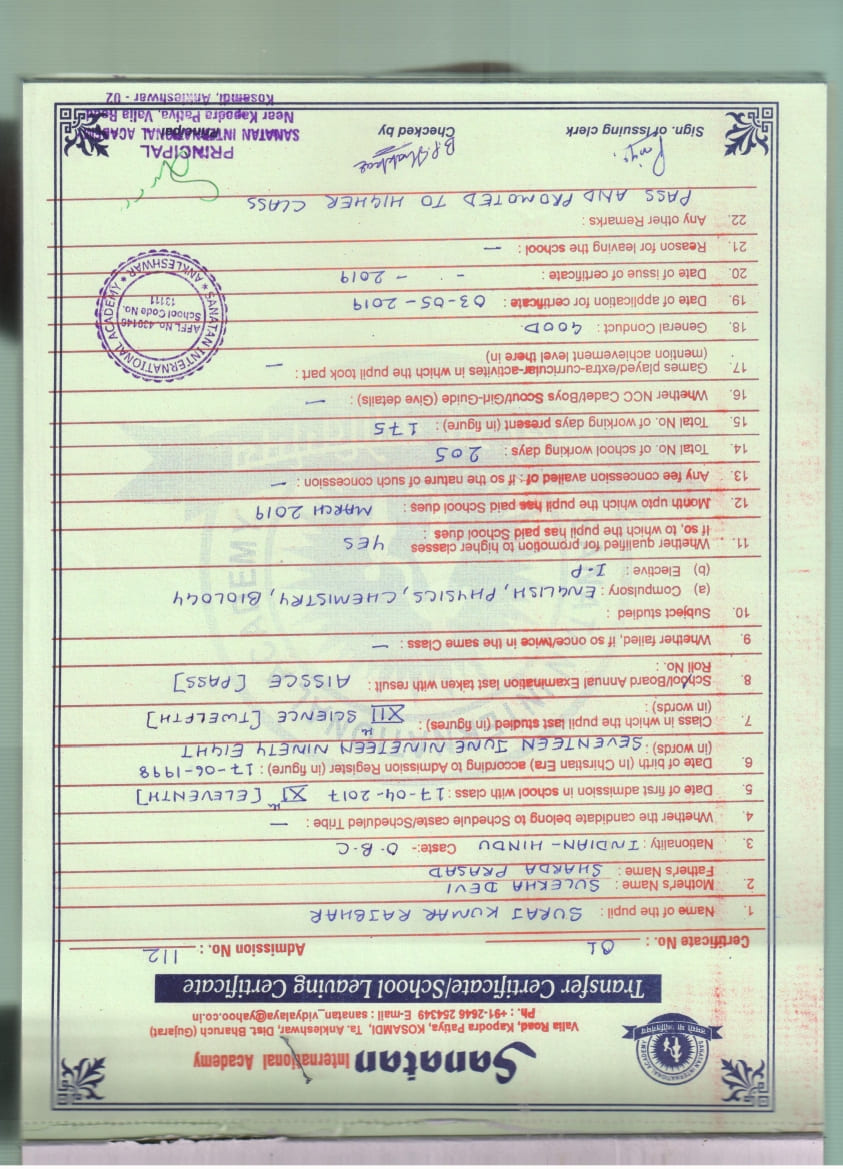 Sanatan International Academy
Valia Road, Kapodra Patiya, KOSAMDI, Ta. Ankleshwer, Dist. Bharuch (Gujarat)
Ph. : +91-2646 254349 E-mail : sanatan_vidyalaya@yahoo.co.in
Transfer Certificate/School Leaving Certificate
Certificate No. : 01 Admission No. : 112
1. Name of the pupil : SURAJ KUMAR RAJBHAR
2. Mother's Name : SULEKHA DEVI
Father's Name : SHARDA PRASAD
3. Nationality : INDIAN - HINDU Caste:- O.B.C
4. Whether the candidate belong to Schedule caste/Scheduled Tribe : —
5. Date of first admission in school with class : 17-04-2017 XI th [ELEVENTH]
6. Date of birth (In Chirstian Era) according to Admission Register (in figure) : 17-06-1998
(in words) : SEVENTEEN JUNE NINETEEN NINETY EIGHT
7. Class in which the pupil last studied (in figures) : XII th SCIENCE [TWELFTH]
(in words) :
8. School/Board Annual Examination last taken with result : AISSCE [PASS]
Roll No. :
9. Whether failed, if so once/twice in the same Class : —
10. Subject studied :
(a) Compulsory : ENGLISH, PHYSICS, CHEMISTRY, BIOLOGY
(b) Elective : I.P
11. Whether qualified for promotion to higher classes YES
If so, to which the pupil has paid School dues :
12. Month upto which the pupil has paid School dues : MARCH 2019
13. Any fee concession availed of : if so the nature of such concession : —
14. Total No. of school working days : 205
15. Total No. of working days present (in figure) : 175
16. Whether NCC Cadet/Boys Scout/Girl-Guide (Give details) : —
17. Games played/extra-curricular-activites in which the pupil took part : —
(mention achievement level there in)
18. General Conduct : GOOD
19. Date of application for certificate : 03-05-2019
20. Date of issue of certificate : - - 2019
21. Reason for leaving the school : —
22. Any other Remarks :
PASS AND PROMOTED TO HIGHER CLASS
SANATAN INTERNATIONAL ACADEMY * ANKLESHWAR *
AFFI. No. 430146
School Code No.
13111
Sign. of Issuing clerk
Checked by
Principal
PRINCIPAL
SANATAN INTERNATIONAL ACADE
Near Kapodra Patiya, Valia Road
Kosamdi, Ankleshwar - 02